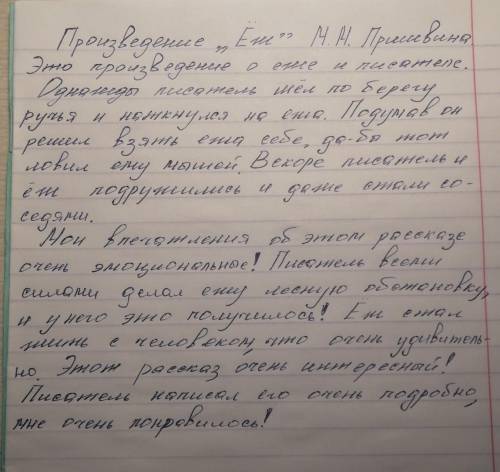 Произведение „Ёж" М.М. Пришвина.
Это произведение о еже и писателе.
Однажды писатель шёл по берегу
ручья и наткнулся на ежа. Подумав он
решил взять ежа себе, да-бы тот
ловил ему мышей. Вскоре писатель и
ёж подружились и даже стали со-
седями.
Мои впечатления об этом рассказе
очень эмоциональные! Писатель всеми
силами делал ежу лесную обстановку,
и у него это получилось! Еж стал
жить с человеком, что очень удивитель-
но. Этот рассказ очень интересный!
Писатель написал его очень подробно,
мне очень понравилось!